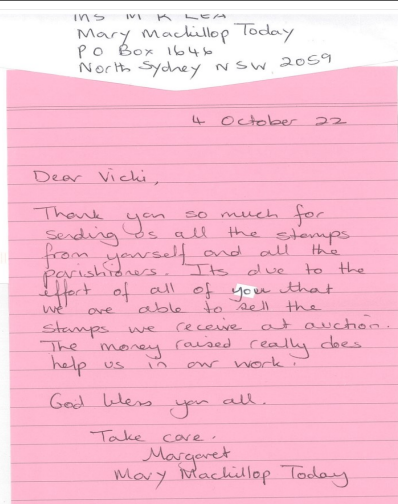 Mrs M R Lea
Mary Mackillop Today
P O Box 1646
North Sydney NSW 2059
4 October 22
Dear Vicki,
Thank you so much for
sending us all the stamps
from yourself and all the
parishioners. Its due to the
effort of all of you that
we are able to sell the
stamps we receive at auction.
The money raised really does
help us in our work.
God bless you all.
Take care.
Margaret
Mary Mackillop Today